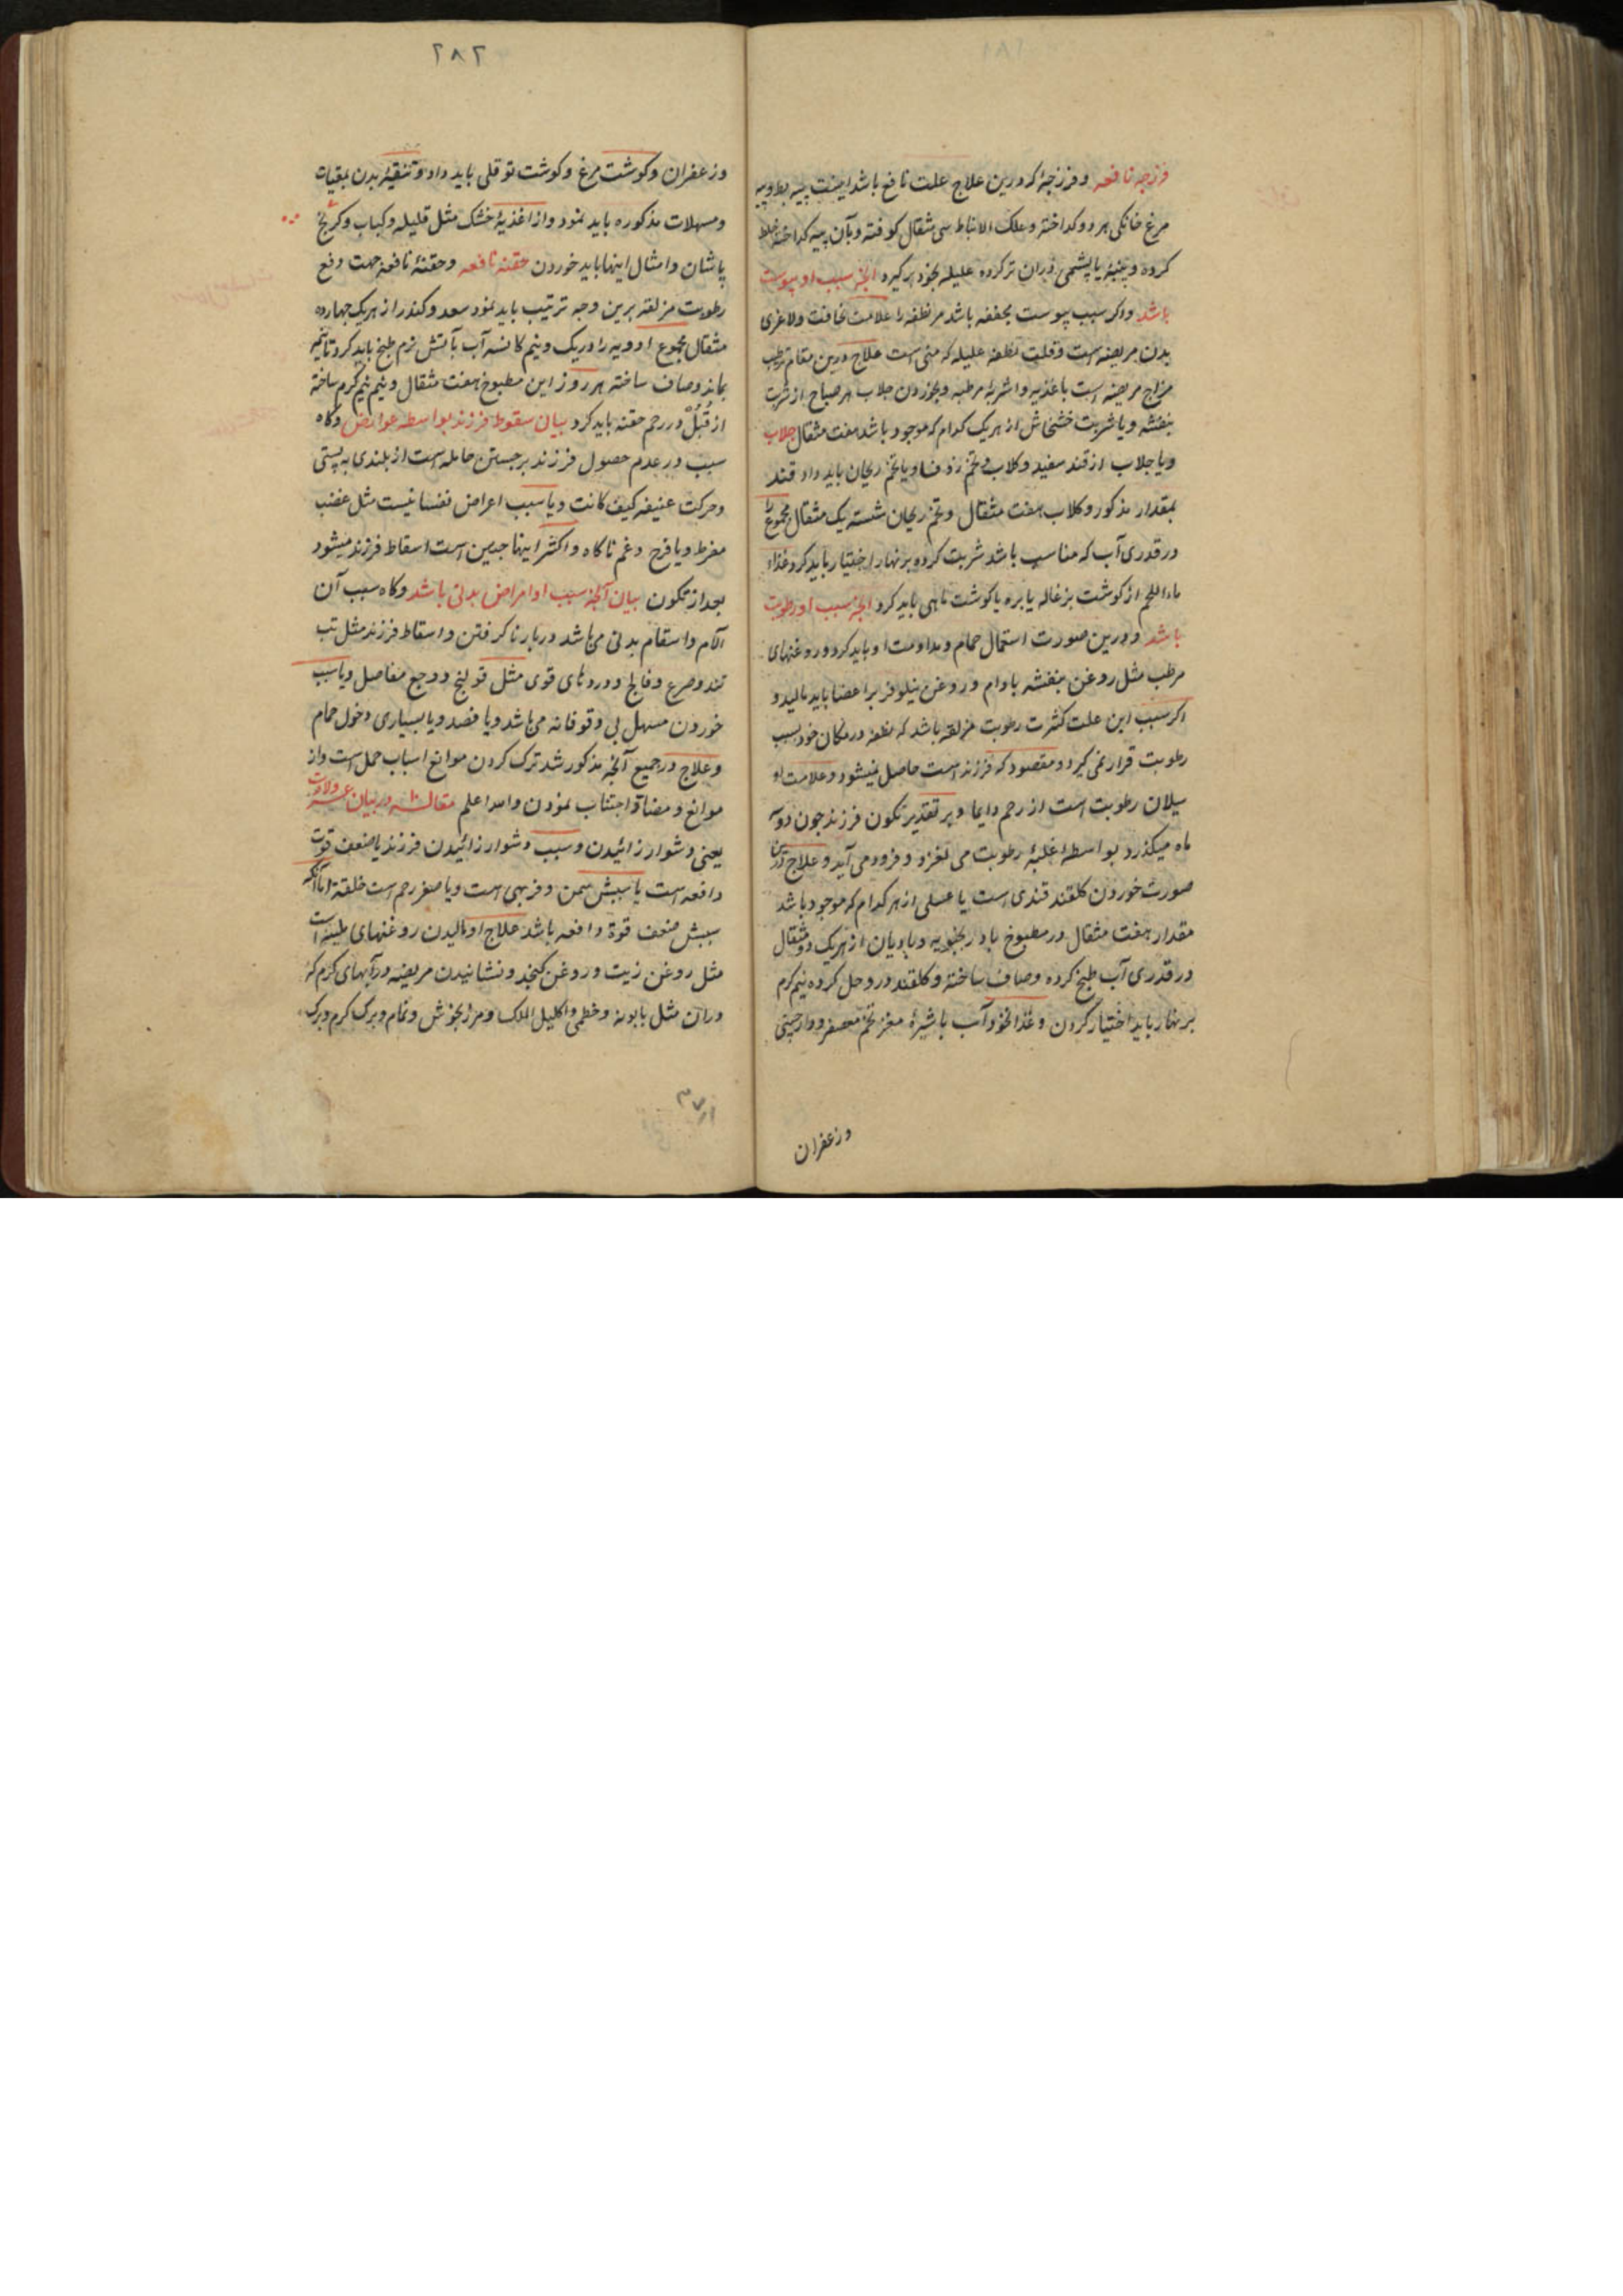 فرزجه نافعه وفرزجهٔ که درین علاج علت نافع باشد اینست پیه بط وپیه
مرغ خانکی هر دو کداخته وعلک الانباط سی مثقال کوفته وبآن پیه کداخته خلط
کرده وپنبهٔ یا پشمی دران تر کرده علیله بخود برکیرد آنچه سبب او یبوست
باشد واکر سبب یبوست مجففه باشد مر نطفه را علامت نحافت ولاغری
بدن مریضه است وقلت نطفهٔ علیله که منی است علاج درین مقام ترطیب
مزاج مریضه است باغذیه واشربهٔ مرطبه وبخوردن جلاب هر صباح از شربت
بنفشه ویا شربت خشخاش از هر یک کدام که موجود باشد هفت مثقال جلاب
ویا جلاب از قند سفید وکلاب وتخم ویا تخم ریحان باید داد قند
بمقدار مذکور وکلاب هفت مثقال وتخم ریحان شسته یک مثقال مجموع را
در قدری آب که مناسب باشد شربت کرده بر نهار اختیار باید کرد وغذا
ماءاللحم از کوشت بزغاله یا بره یا کوشت ماهی باید کرد آنچه سبب او رطوبت
باشد ودرین صورت استعمال حمام ومداومت او باید کرد وروغنهای
مرطب مثل روغن بنفشه بادام وروغن نیلوفر بر اعضا باید مالید و
اکر سبب این علت کثرت رطوبت مزلقه باشد که نطفه در مکان خود بسبب
رطوبت قرار نمی کیرد ومقصود که فرزند است حاصل نمیشود وعلامت او
سیلان رطوبت است از رحم دایما وبر تقدیر تکون فرزند چون دو سه
ماه میکذرد بواسطه اغلبهٔ رطوبت می لغزد وفرود می آید وعلاج درین
صورت خوردن کلقند قندی است یا عسلی از هر کدام که موجود باشد
مقدار هفت مثقال در مطبوخ بادرنجبویه وبادیان از هر یک دو مثقال
در قدری آب طبخ کرده وصاف ساخته وکلقند درو حل کرده نیم کرم
بر نهار باید اختیار کردن وغذا نخودآب با شیرهٔ مغز تخم معصفر ودارچینی
وزعفران
۲۸۲
وزعفران وکوشت مرغ وکوشت توقلی باید داد وتنقیهٔ بدن بمقیات
ومسهلات مذکوره باید نمود واز اغذیهٔ خشک مثل قلیله وکباب وکرنج
پاشان وامثال اینها باید خوردن حقنه نافعه وحقنهٔ نافعه جهت دفع
رطوبت مزلقه برین وجه ترتیب باید نمود سعد وکندر از هر یک چهارده
مثقال مجموع ادویه را در یک ونیم کاسه آب بآتش نرم طبخ باید کرد تا نیمه
بماند وصاف ساخته هر روز این مطبوخ هفت مثقال ونیم نیم کرم ساخته
از قُبُل در رحم حقنه باید کرد بیان سقوط فرزند بواسطه عوارض وکاه
سبب در عدم حصول فرزند برجستن حامله است از بلندی به پستی
وحرکت عنیفه کیف کانت ویا سبب اعراض نفسانیست مثل غضب
مفرط ویا فرح وغم ناکاه واکثر اینها جهین است اسقاط فرزند میشود
بعد از تکون بیان آنچه سبب او امراض بدنی باشد وکاه سبب آن
آلام واسقام بدنی می باشد در بار ناکرفتن واسقاط فرزند مثل تب
تند وصرع وفالج ودردهای قوی مثل قولنج ووجع مفاصل ویا سبب
خوردن مسهل بی وقوفانه می باشد ویا فصد ویا بسیاری دخول حمام
وعلاج در جمیع آنچه مذکور شد ترک کردن موانع اسباب حمل است واز
موانع ومضاة اجتناب نمودن والله اعلم مقاله ۱۰ در بیان عسر ولادت
یعنی دشوار زائیدن وسبب دشوار زائیدن فرزند یا ضعف قوت
دافعه است یا سببش سمن وفربهی است ویا صغر رحم است خلقة اما آنکه
سببش ضعف قوة دافعه باشد علاج او مالیدن روغنهای ملینه است
مثل روغن زیت وروغن کنجد ونشانیدن مریضه در آبهای کرم که
دران مثل بابونه وخطمی واکلیل الملک ومرزنجوش ونمام وبرک کرم وبرک